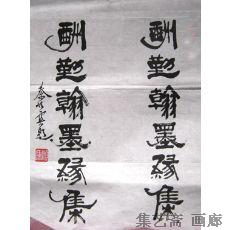 酬勤翰墨缘集
酬勤翰墨缘集
集艺斋 画廊